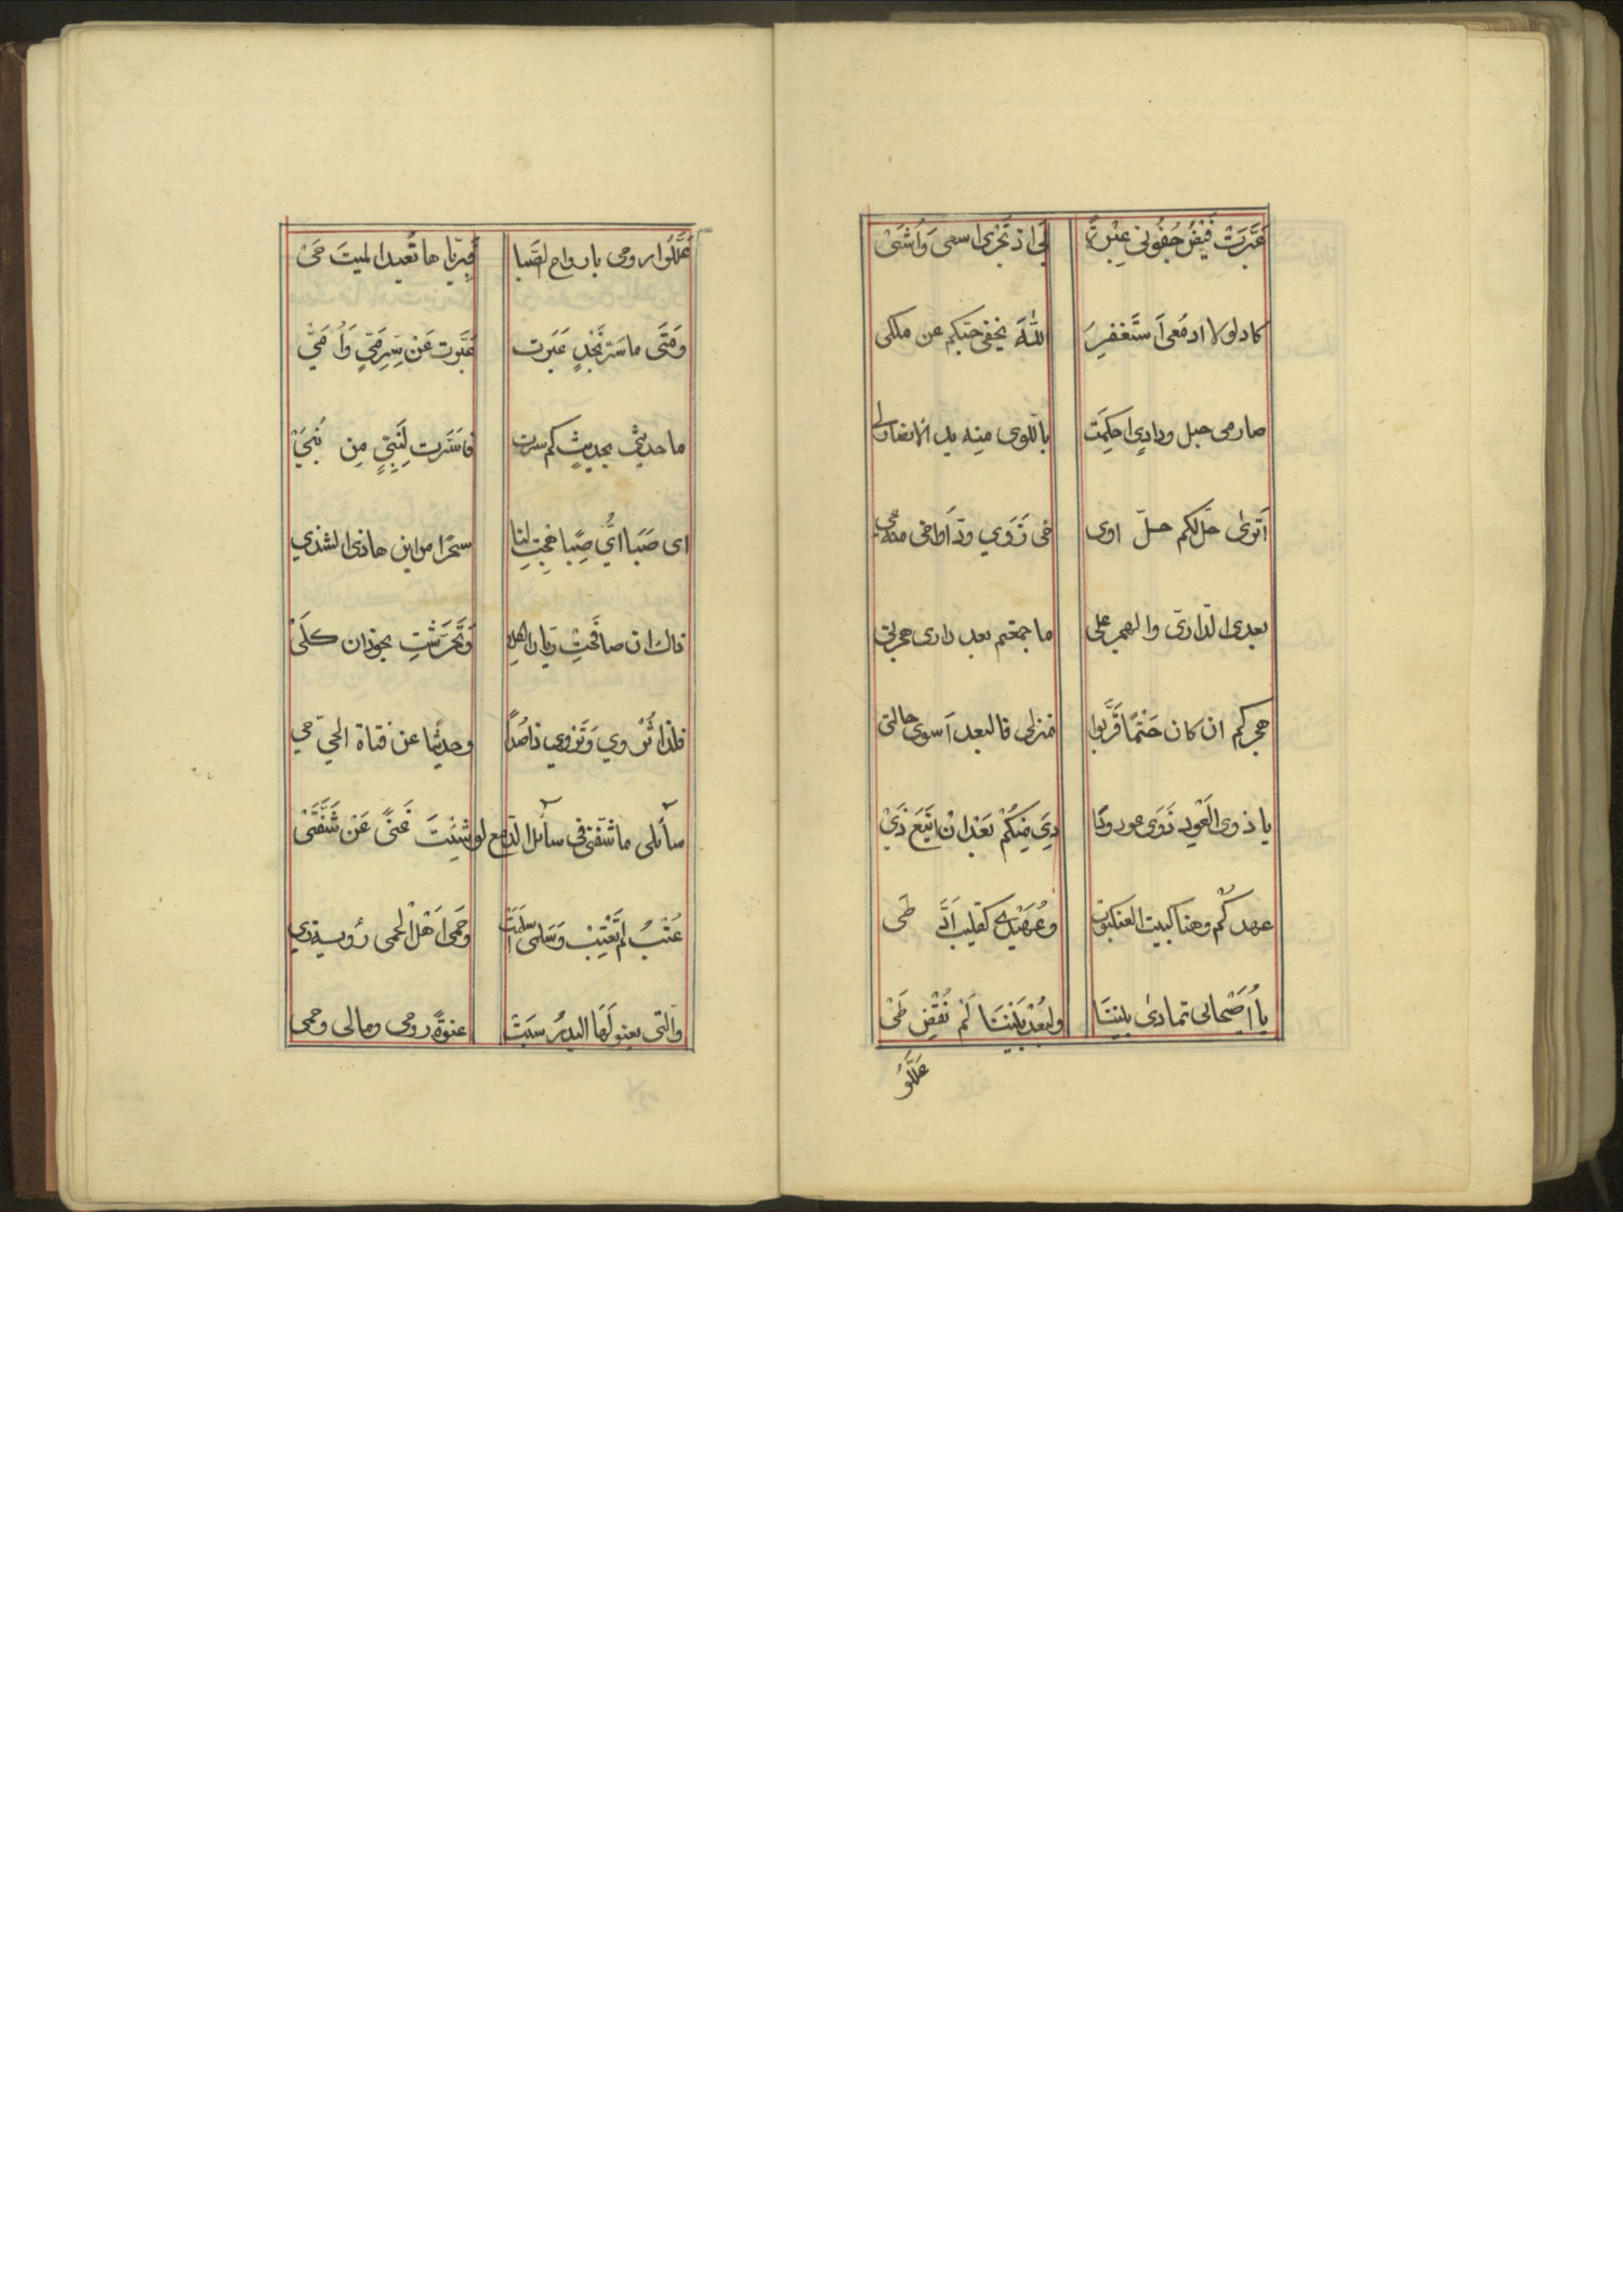 عَبَّرَتْ فَيْضُ جُفُونى عِبْرةً بى اذ تَجْرى اسعى وَاُشَىْ
كاد لولا ادمُعى اَستَغفِرُ اللّٰهَ يخفى حبّكم عن ملكى
صارمى حبل ودادٍ احكِمَت باللوى منه يد الانصاف لى
اَتَرىٰ حَلّ لكم حلّ اوى خى رَوَي ودّ اَواخى منه عى
بعدى الدّارىّ والهجر على ما جمعتم بعد دارى هجرتى
هجركم ان كان حَتْمًا قَرّبوا منزلى فالبعد اَسوى حالتى
يا ذوى العَوْدِ ذَوَى عود ودا دِىَ مِنكُمْ بَعْدَ انْ اَيْنَعَ ذَىْ
عهدكُم وهنا كبيت العنكبوت وعُهَيْدى كقليب اَدَّ طَى
يا اُصَيْحابى تمادىٰ بيننَا ولبُعْدٍ بَيْنَنَا لَمْ نُقْضَ طَىْ
عَلّلُوا
عَلّلُوا روحى بارواح الصَّبا فبِرَيّاها تُعيد الميتَ حَىْ
وَمَتَى ما سَرّ نَجْدٍ عَبَرت عَبَّرت عَنْ سِرِ مَىٍّ وَاُمَىْ
ما حديثى بحديثٍ كم سرت فاسَرَّت لِنَبِىٍّ مِن نُبَىْ
اى صَبَا اىُّ صَبًا هجتِ لنا سحرًا من اين هاذى الشذى
ذاك ان صافَحْتِ ريّان الكلا وَتَحَرّشْتِ بحوذان كُلَىْ
فلذا تُرْوي وَتَروي ذا صَدًا وحديثًا عن فتاة الحىّ حى
سآئلى ما شفّنى فى سآئل الدّمع لو شِئتَ غِنىً عَنْ شَفَتَىْ
عُتْبُ لم تُعْتِبْ وَسَلمى اسلمَتْ وَحَمى اَهْلُ الحمى رؤية رى
والتى يعنو لَهَا البدرُ سبَتْ عنوةً روحى ومالى وحمى